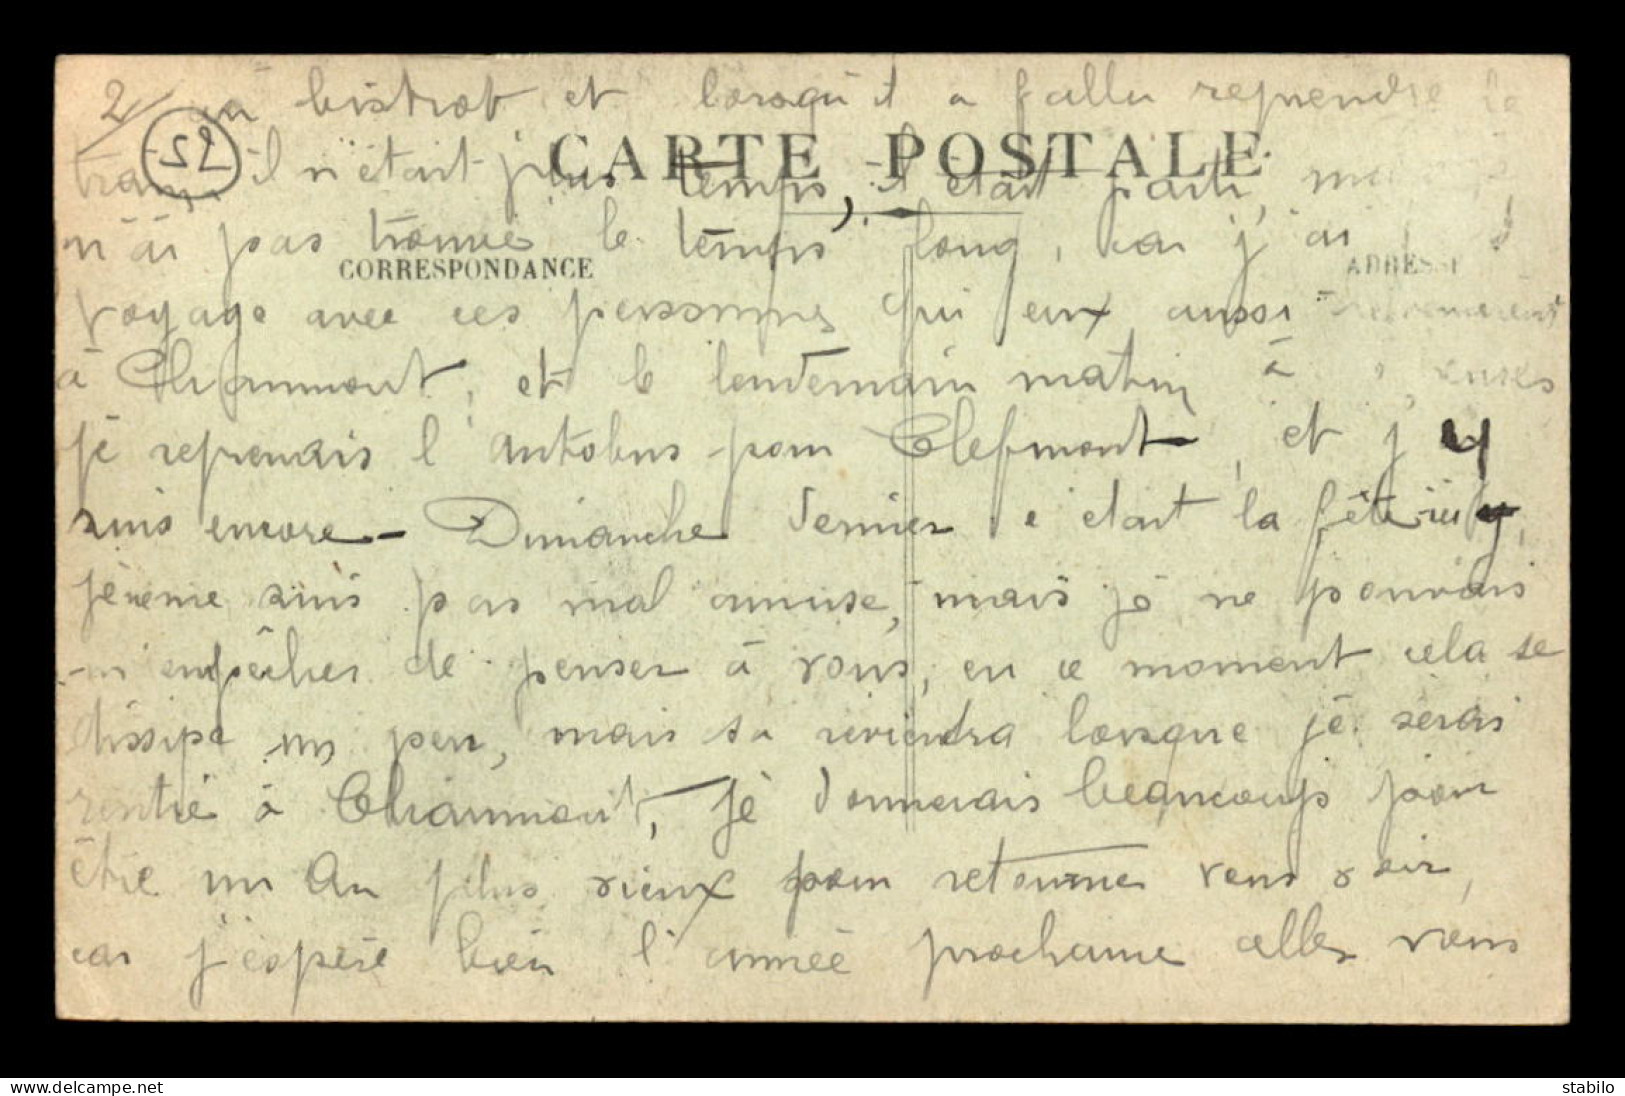 2/ au bistrot et lorsqu'il a fallu reprendre le
52
CARTE POSTALE
tram, il n'était plus temps, il était parti,
n'ai pas trouvé le temps long, car j'ai
CORRESPONDANCE
ADRESSE
voyagé avec ces personnes qui eux aussi
à Chaumont, et le lendemain matin à
je reprenais l'autobus pour Clefmont, et j'y
suis encore - Dimanche dernier c'était la fête ici,
je me suis pas mal amusé, mais je ne pouvais
m'empêcher de penser à vous, en ce moment cela se
dissipe un peu, mais sa reviendra lorsque je serais
rentré à Chaumont, Je donnerais beaucoup pour
être un An plus vieux pour retourner vous voir,
car j'espère bien l'année prochaine aller vous
stabilo
www.delcampe.net